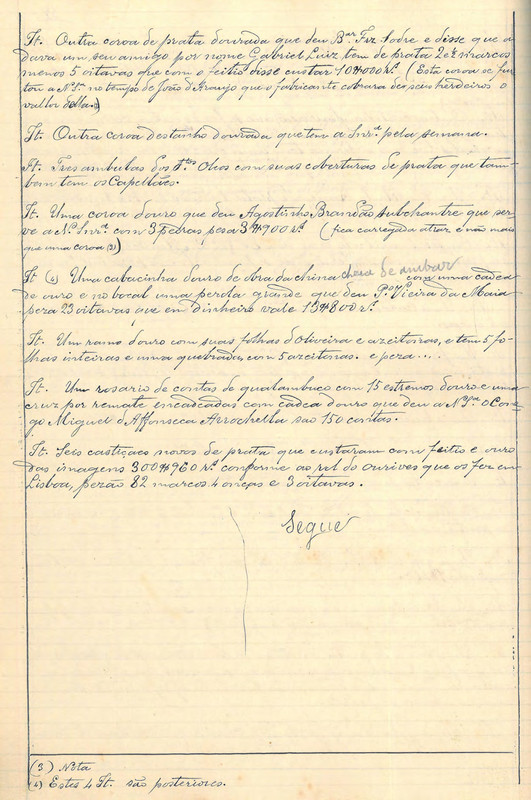 It. Outra coroa de prata dourada que deu B.ar Frz. Sodre e disse que a
dava um seu amigo por nome Gabriel Luiz tem de prata 2 e ½ marcos
menos 5 oitavas que com o feitio disse custar 10$000 r.s (Esta coroa se fur
tou a N. Sr.a no tempo de João d'Araujo que o fabricante cobrara de seus herdeiros o
vallor della.)
It. Outra coroa destanho dourada que tem a Snr.a pela semana.
It. Tres ambulas dos S.tos Oleos com suas coberturas de prata que tam-
bem tem os Capellães.
It. Uma coroa douro que deu Agostinho Brandão subchantre que ser-
ve a N.a Snr.a com 3 pedras peza 3$900 r.s (fica carregada atraz e não mais
que uma coroa (3))
It. (4) Uma cabacinha douro de obra da china cheia de ambar com uma cadea
de ouro e no bocal uma perola grande que deu P.o Vieira da Maia
peza 23 oitavas que em dinheiro vale 13$800 r.s
It. Um ramo douro com suas folhas d'oliveira e azeitonas, e tem 5 fo-
lhas inteiras e uma quebrada, com 5 azeitonas. e peza....
It. Um rosario de contas de guatambuco com 15 estremos douro e uma
cruz por remate encadeadas com cadea douro que deu a N. Sr.a o Cone-
go Miguel d'Affonseca Arrochella são 150 contas.
It. Seis castiçaes novos de prata que custaram com feitio e ouro
das imagens 300$960 r.s conforme ao rol do ourives que os fez em
Lisboa, pezão 82 marcos 4 onças e 3 oitavas.
Segue
(3) Nota
(4) Estes 4 It. são posteriores.